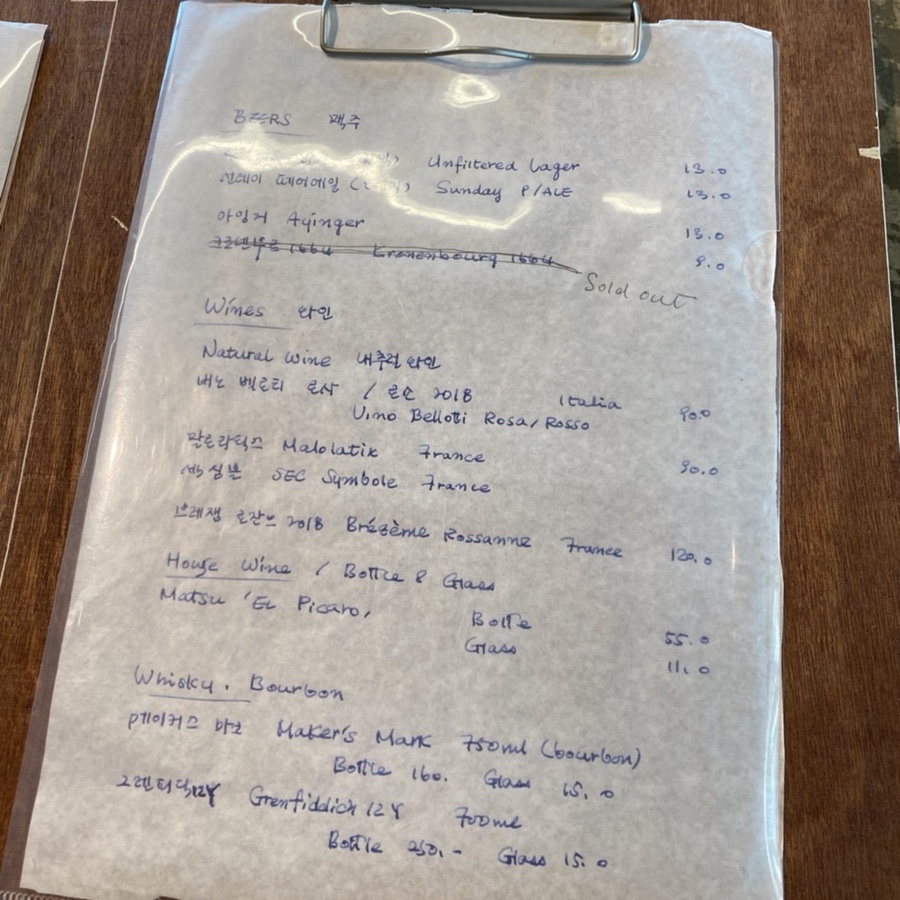 BEERS 맥주
Unfiltered Lager 13.0
썬데이 페어에일 Sunday P/ALE 13.0
아잉거 Ayinger 13.0
크로넨부르 1664 Kronenbourg 1664 9.0
Sold out
Wines 와인
Natural Wine 내추럴 와인
비노 벨로티 로사 / 로쏘 2018 Italia 90.0
Vino Bellotti Rosa/Rosso
말로라틱스 Malolatix France 90.0
쎅 심볼 SEC Symbole France
브레젬 로잔느 2018 Brézème Rossanne France 120.0
House Wine / Bottle & Glass
Matsu 'EL Picaro, Bottle 55.0
Glass 11.0
Whisky. Bourbon
메이커스 마크 Maker's Mark 750ml (bourbon)
Bottle 160. Glass 15.0
그렌피딕12Y Grenfiddich 12Y 700ml
Bottle 250.- Glass 15.0